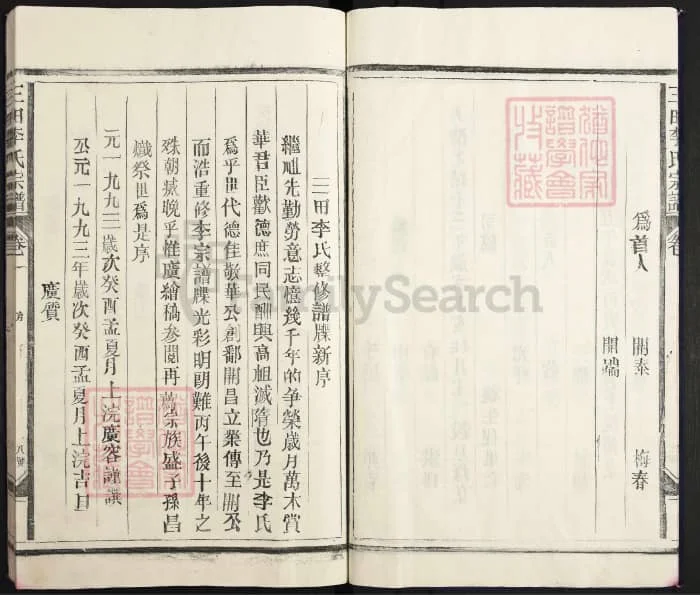 三田李氏宗譜
卷
爲首人
開泰
梅春
開端
三田李氏整修譜牒新序
繼祖先勤勞意志憶幾千年的争榮歲月萬木賞
華君臣歡德庶同民酬興高祖滅隋也乃是李氏
爲乎世代德佳敬華公創鄱開昌立業傳至開公
而浩重修李宗譜牒光彩明朗難丙午後十年之
殊朝藏晚乎惟廣繪稿参閲再獻宗族盛子孫昌
熾祭世爲是序
元一九九三歲次癸酉孟夏月上浣廣容謹譔
公元一九九三年歲次癸酉孟夏月上浣吉旦
廣質
三田李氏宗譜
卷一
FamilySearch
譜學會
收藏